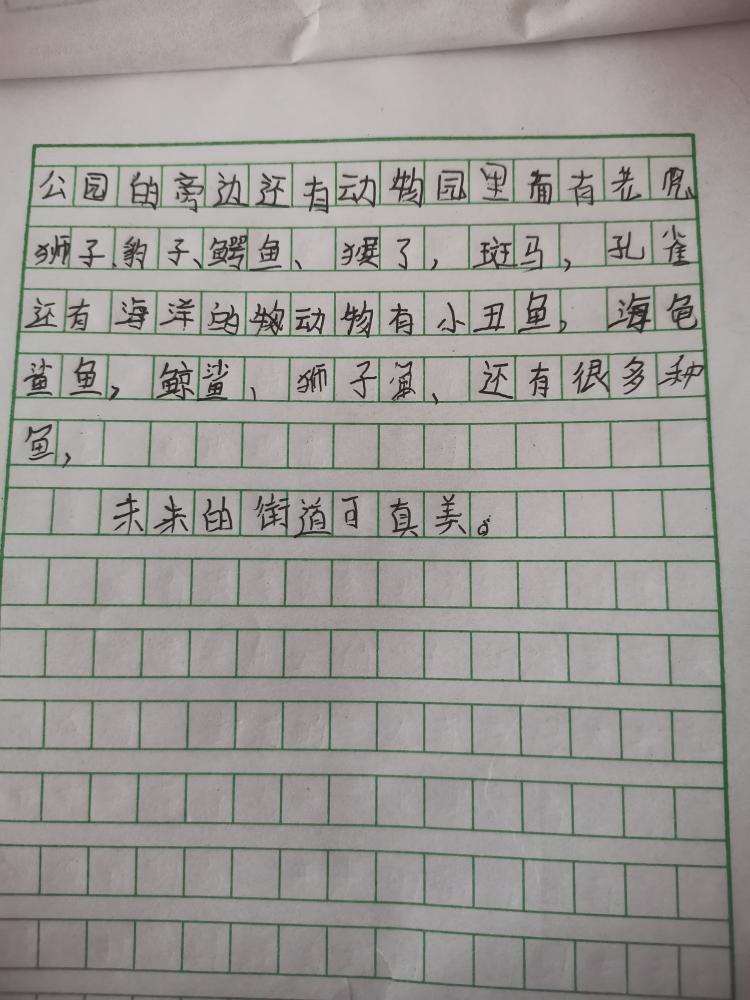 公园的旁边还有动物园里面有老虎、
狮子、豹子、鳄鱼、猴了，斑马，孔雀
还有海洋的物动物有小丑鱼，海龟
鲨鱼，鲸鲨、狮子鱼、还有很多种
鱼，
未来的街道可真美。